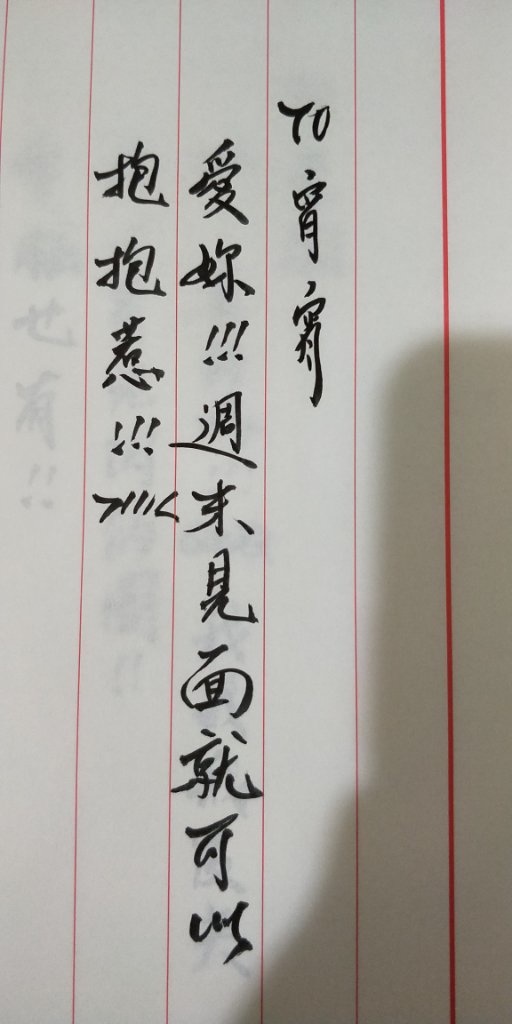 TO 宵宵
愛妳!!!週末見面就可以
抱抱惹!!!
>////<